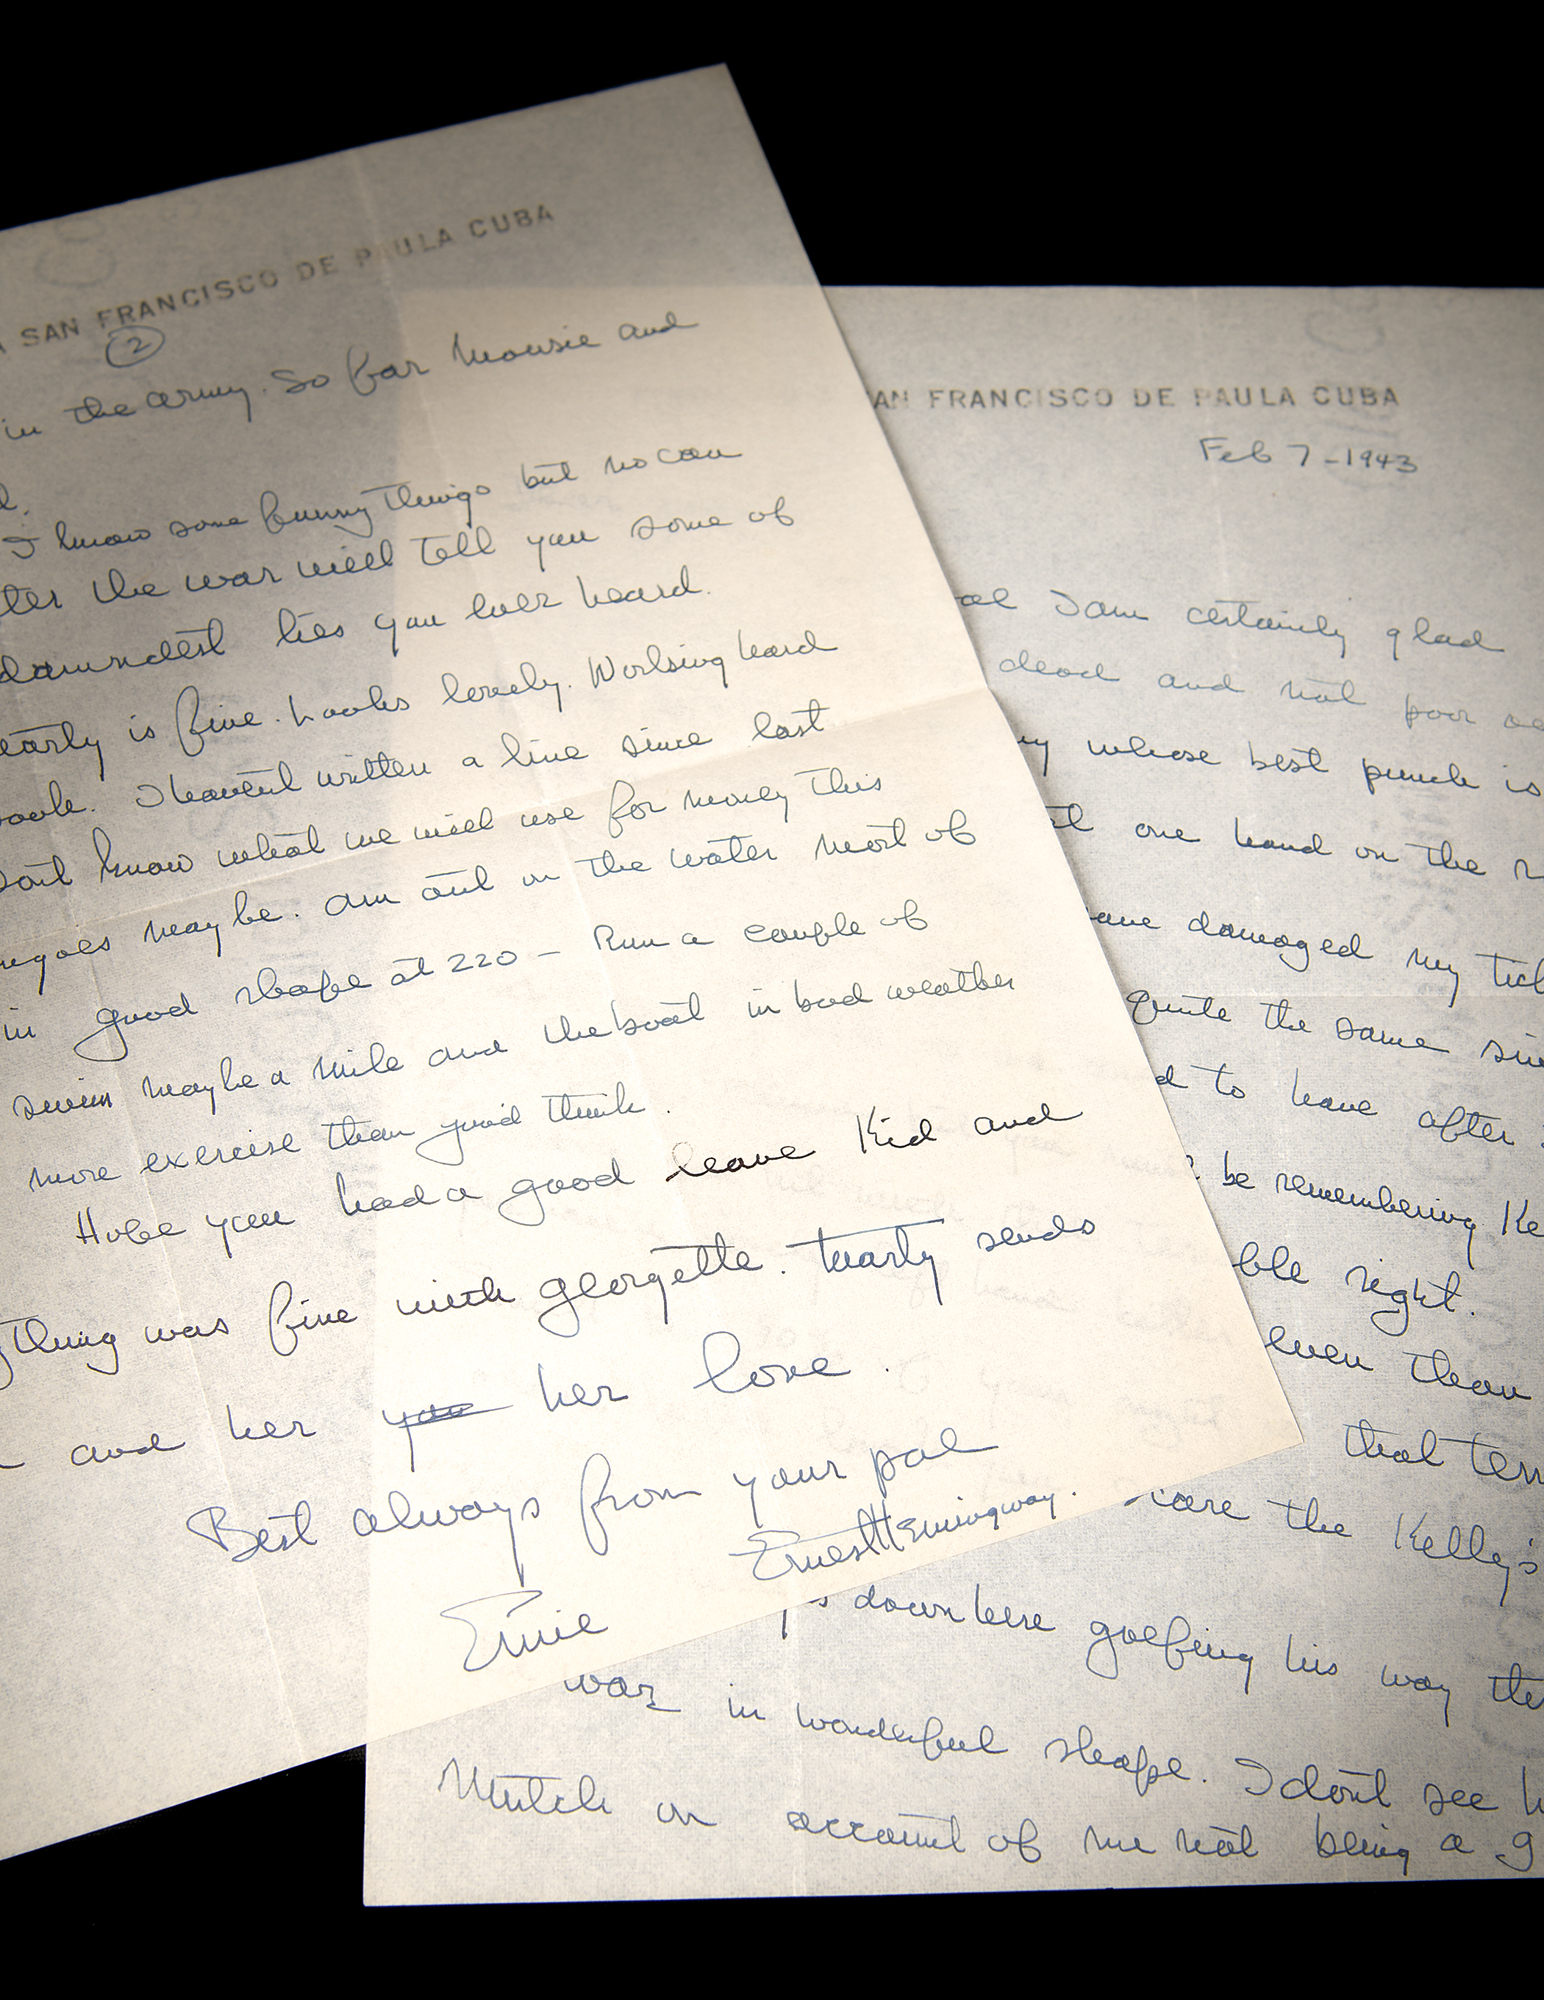 SAN FRANCISCO DE PAULA CUBA
2
in the army. So far Mousie and
I know some funny things but no can
ter the war will tell you some of
damndest lies you ever heard.
arty is fine. Looks lovely. Working hard
book. I havent written a line since last
ont know what we will use for money this
ngoes maybe. Am out on the water most of
in good shape at 220 - Run a couple of
swim maybe a mile and the boat in bad weather
more exercise than youd think.
Hope you had a good leave Kid and
thing was fine with Georgette. Marty sends
and her you her love.
Best always from your pal
Ernest Hemingway.
Ernie
AN FRANCISCO DE PAULA CUBA
Feb 7-1943
I am certainly glad
dead and not poor
whose best punch is
one hand on the
damaged my
quite the same
to have after
be remembering Ke
ble right.
even than
that terr
the Kelly's
down here golfing his way
war in wonderful shape. I dont see
Mutch on account of me not being a g